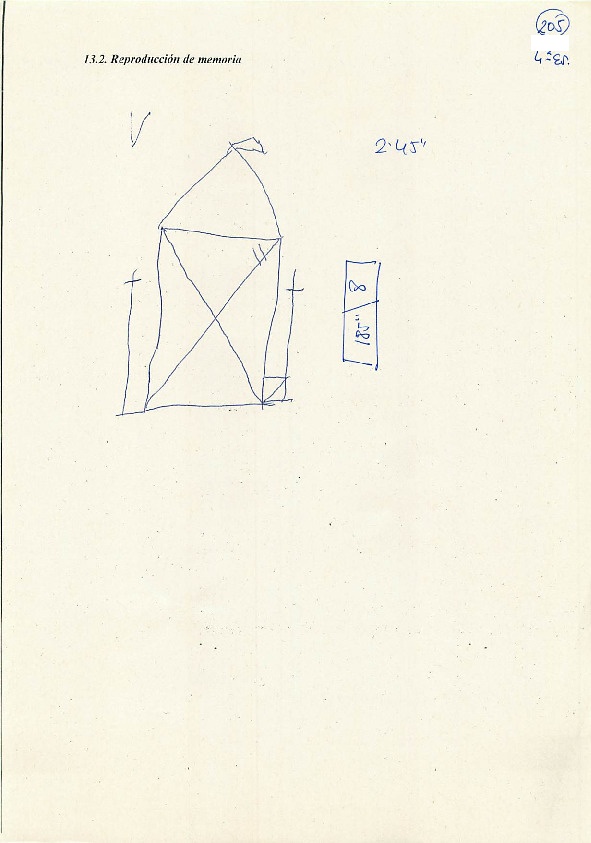 205
4ª Es.
13.2. Reproducción de memoria
V
2'45"
185" / 8